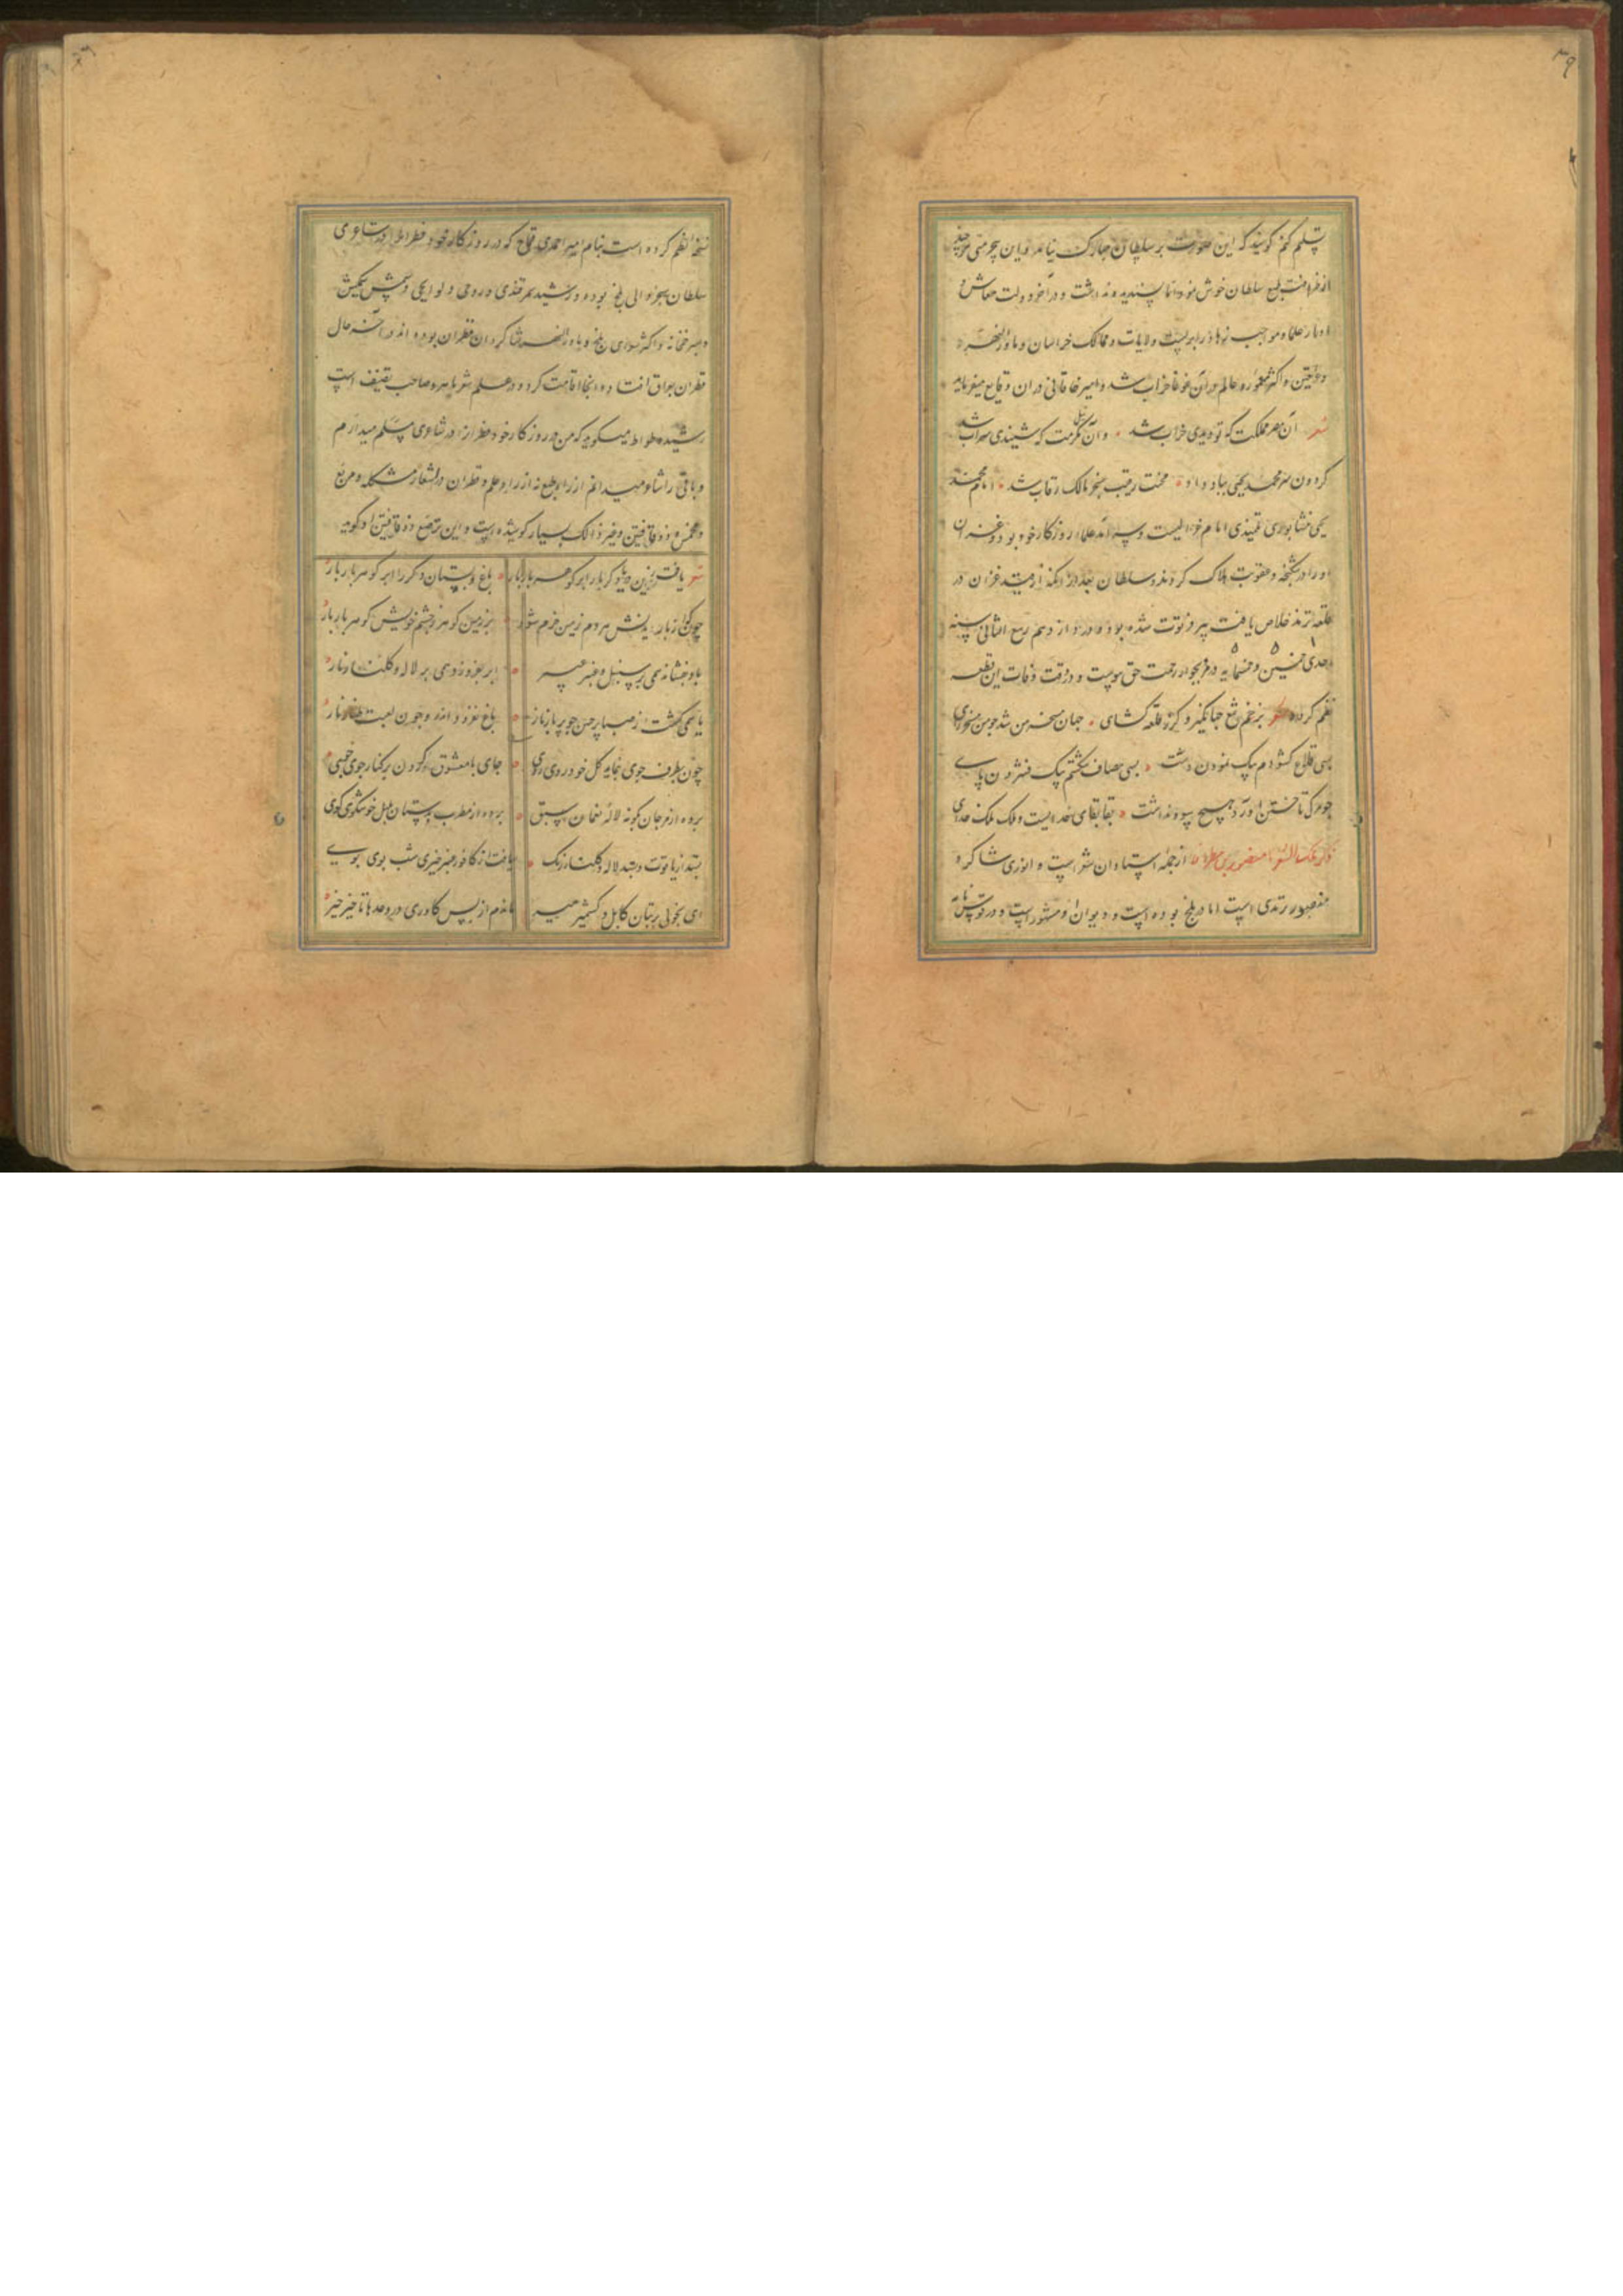 ۳۹
تسلیم کنم گویند که این صورت بر سلطان مبارک نیامد و این بی‌حرمتی
از طرافت طبع سلطان خوش نمود اما پسندیده نداشت و در آخر دولت معاش و
ادرار علما و مواجب زهاد را بر بست ولایات و ممالک خراسان و ماوراءالنهر
و عراقین و اکثر معموره عالم در آن غوغا خراب شد و امیر خاقانی در آن وقایع میفرماید
شعر آن مصر مملکت که تو دیدی خراب شد و آن نیل مکرمت که شنیدی سراب شد
گردون سر محمد یحیی بباد داد محنت رقیب سنجر مالک رقاب شد امام محمد
یحیی نشابوری تلمیذ امام غزالیست و سرآمد علماء روزگار خود بود و غزان
او را در شکنجه و عقوبت هلاک کردند و سلطان بعد از آنکه از قید غزان در
قلعه ترمذ خلاص یافت پیر و فرتوت شده بود و در دوازدهم ربیع الثانی سنه
احدی خمسین و خمسمایه در مرو بجوار رحمت حق پیوست و در وقت وفات این قطعه
نظم کرده شعر بزخم تیغ جهانگیر و گرز قلعه گشای جهان مسخر من شد چو من مسخر رای
بسی قلاع گشودم بیک نمودن دست بسی مصاف شکستم بیک فشردن پای
چو مرگ تاختن آورد هیچ سود نداشت بقا بقای خدایست و ملک ملک خدای
ذکر ملک الشعرا از جمله استادان شعر است و انوری شاگرد
ترمدی است اما در بلخ بوده است و دیوان او مشهور است و
نسخه نظم کرده است بنام امیر احمدی قماج که در روزگار خود در شاعری
سلطان سنجر والی بلخ بوده و رشیدی سمرقندی و روحی ولوالجی و شمس سیمکش
و پسر خمخانه و اکثر شعرای بلخ و ماوراءالنهر شاگردان قطران بوده اند و در آخر حال
قطران بعراق افتاده و آنجا اقامت کرد و در علم شعر ماهر و صاحب تصنیف است
رشید وطواط میگوید که من در روزگار خود قطران را در شاعری مسلم میدارم
و باقی را شاعر نمیدانم از راه طبع نه از راه علم و قطران در اشعار مشکله و مربع
و مخمس و ذوقافیتین و غیر ذالک بسیار کوشیده است و این ترصیع ذوقافیتین او گوید
شعر یافت زین دریا دگر بار ابر گوهر بار بار باغ و بستان دگر را ابر گوهر بار بار
بر زمین گوهر ز چشم خویش گوهر بار بار
باد بفشاند همی بر سنبل و عنبر عبیر ابر بفروزد همی بر لاله و گلنار نار
باغ نوروز
چون بطرف جوی بنماید گل خودروی روی جای با معشوق کردن بر کنار جوی
برده از مرجان بگونه لاله نعمان سبق برده از مطرب بدستان بلبل خوشگوی گوی
بستد از یاقوت و بسد لاله و گلنار رنگ یافت از کافور و عنبر خیری شب بوی بوی
ای بخوبی بر بتان کابل و کشمیر میر ماندم از بس کاوری در وعدها تاخیر خیر